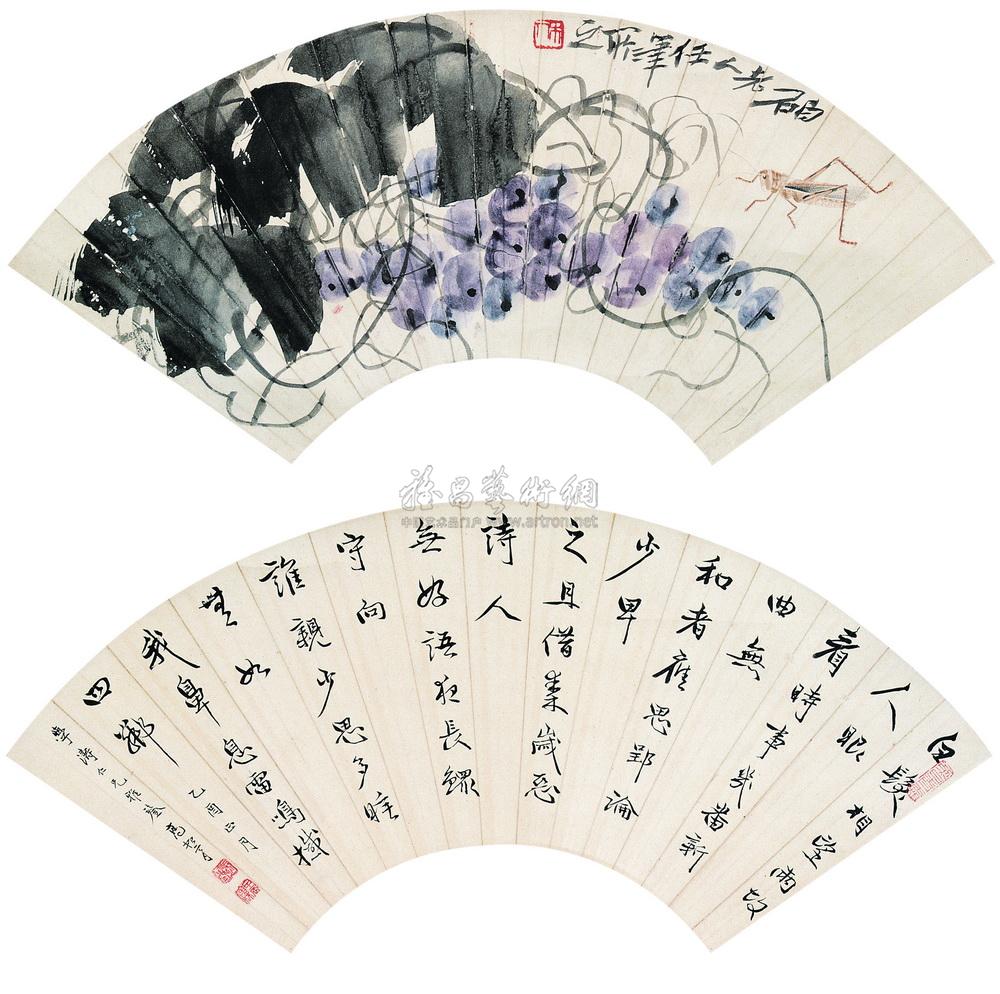 白石老人任筆
雅昌藝術網
中国艺术品门户 www.artron.net
白鬢相望兩故
人眼
看時事幾番新
曲無
和者應思郢論
少卑
之且借秦歲惡
詩人
無好語夜長鰥
守向
誰親少思多睡
無如
我鼻息雷鳴撼
四鄰
乙酉正月
濤仁兄雅鑒